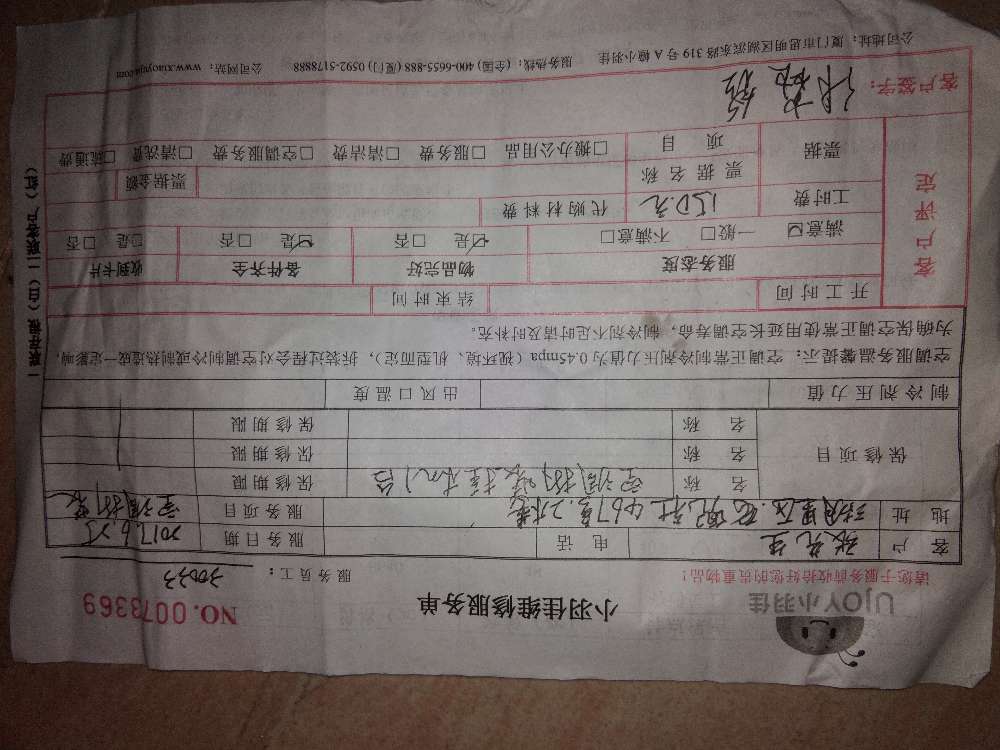 UJOY小羽佳
小羽佳维修服务单
NO. 0073369
请您于服务前收拾好您的贵重物品！
服务员工：30033
客户 张先生 电话 服务日期 2017.6.25
地址 服务项目 空调拆装
保修项目
名称 空调拆装挂机1台 保修期限
名称 保修期限
名称 保修期限
制冷剂压力值 出风口温度
空调服务温馨提示：空调正常制冷剂压力值为0.45mpa（视环境、机型而定），拆装过程会对空调制冷或制热造成一定影响，
为确保空调正常使用延长空调寿命，制冷剂不足时请及时补充。
客户评定
开工时间 结束时间
服务态度 物品完好 备件齐全 收到卡片
满意☑ 一般□ 不满意□ ☑是 □否 ☑是 □否 □是 □否
工时费 150元 代购材料费
票据 票据名称 票据金额
项目 □搬办公用品 □服务费 □清洁费 □空调服务费 □清洗费 □疏通费
客户签字：
公司地址：厦门市思明区湖滨东路319号A幢小羽佳 服务热线：(全国) 400-6655-888 (厦门) 0592-5178888 公司网站：www.xiaoyujia.com
一联存根（白）二联客户（红）